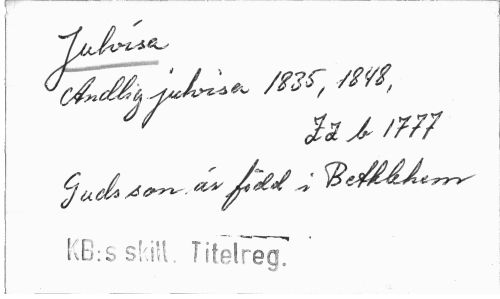 Julvisa
Andlig julvisa 1835, 1848,
ZZ b 1777
Guds son är född i Bethlehem
KB:s skill. Titelreg.